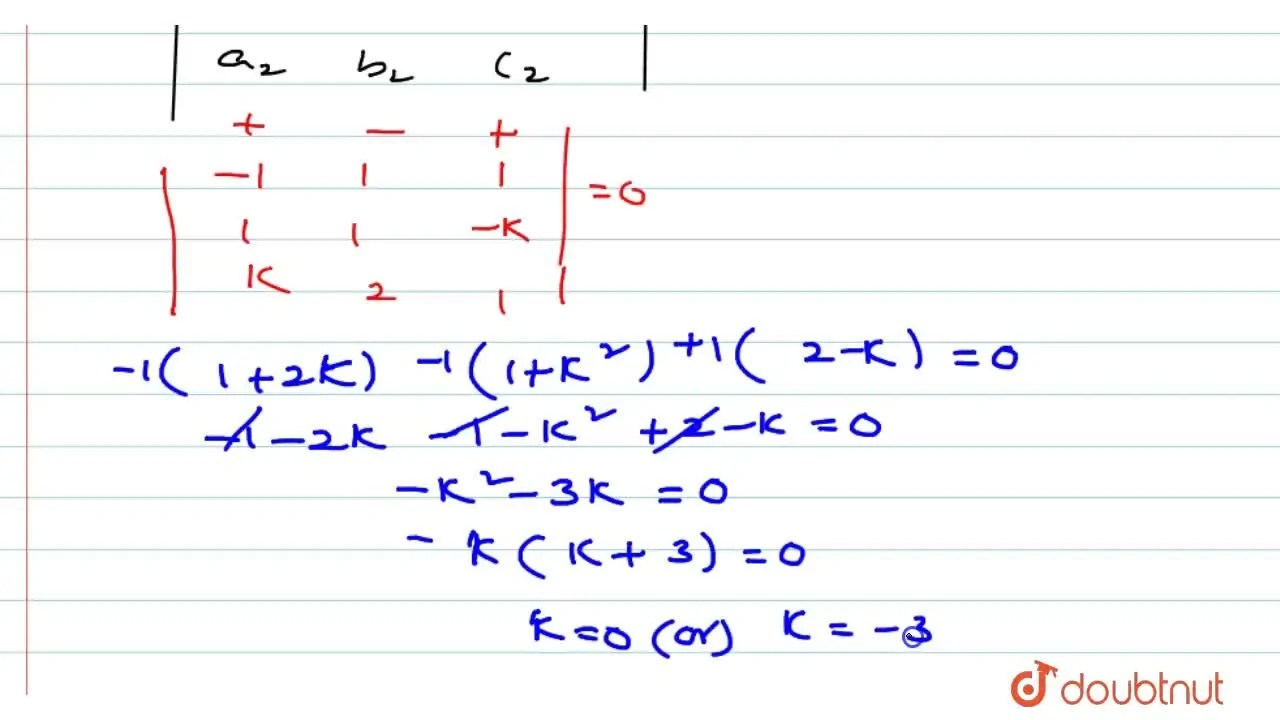 a₂ b₂ c₂
+ − +
−1 1 1
1 1 −K = 0
K 2 1
−1(1+2K) −1(1+K²) +1(2−K) = 0
−1−2K −1−K² +2−K = 0
−K²−3K = 0
− K(K+3) = 0
K=0 (or) K = −3
doubtnut